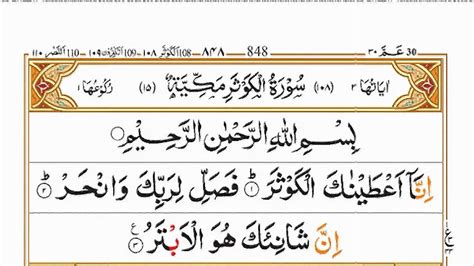 الكوثر ١٠٨ الكافرون ١٠٩ النصر ١١٠ 848 ٨٤٨ عم ٣٠ 30
اٰيَاتُهَا ٣ (١٠٨) سُوْرَةُ الْكَوْثَرِ مَكِّيَّةٌ (١٥) رُكُوْعُهَا
بِسْمِ اللّٰهِ الرَّحْمٰنِ الرَّحِيْمِ
اِنَّاۤ اَعْطَيْنٰكَ الْكَوْثَرَ ؕ ١ فَصَلِّ لِرَبِّكَ وَانْحَرْ ؕ ٢
اِنَّ شَانِئَكَ هُوَ الْاَبْتَرُ ٣ ع